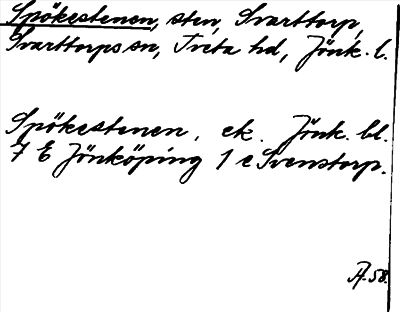 Spökestenen, sten, Svarttorp,
Svarttorps sn, Tveta hd, Jönk. l.
Spökestenen, ek. Jönk. bl.
7 E Jönköping 1 c Svenstorp.
Å. 58.